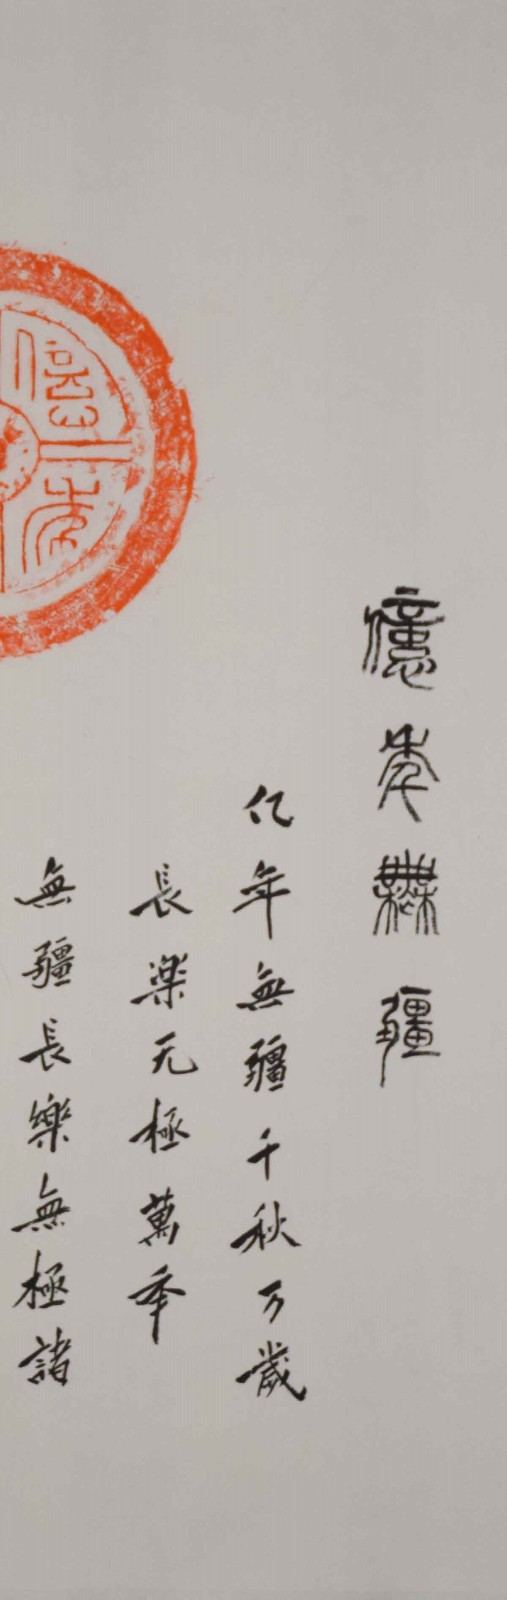 億年無疆
亿年無疆千秋万歲
長楽无極萬年
無疆長樂無極諸
億年